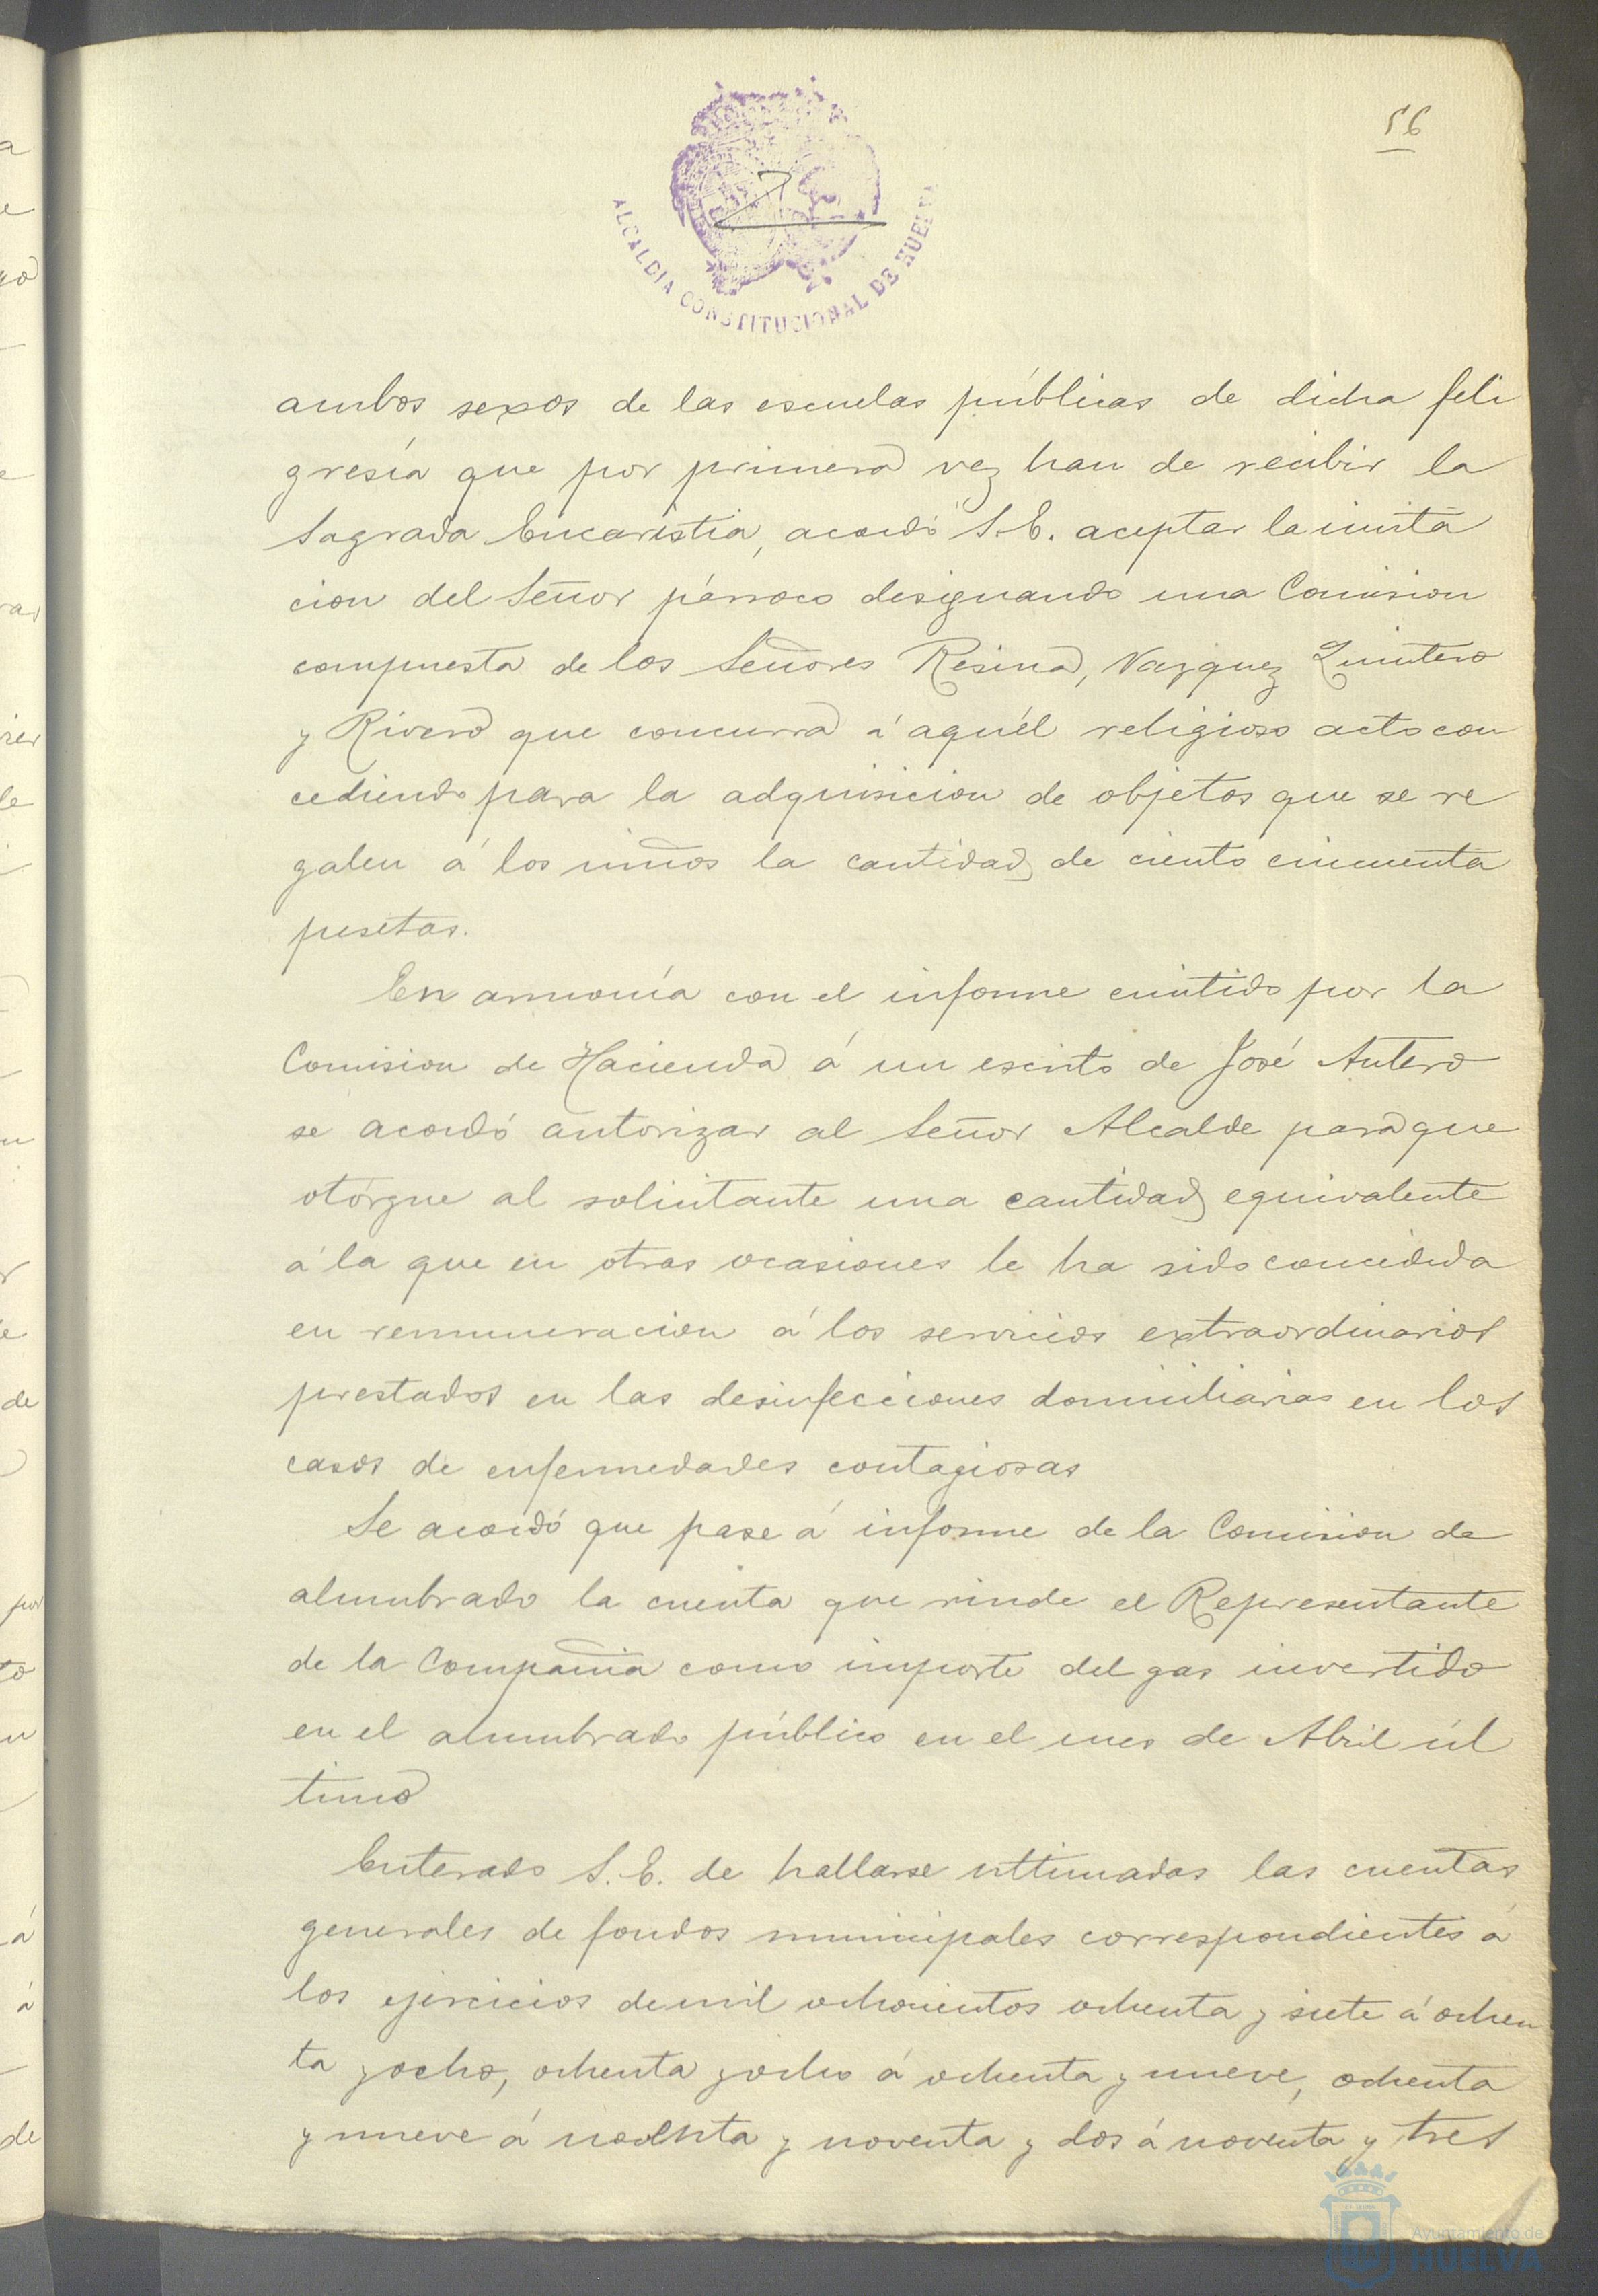 56
ALCALDIA CONSTITUCIONAL DE HUELVA
ambos sexos de las escuelas públicas de dicha feli
gresía que por primera vez han de recibir la
Sagrada Eucaristia, acordó S.E. aceptar la invita
cion del Señor párroco designando una Comision
compuesta de los Señores Resina, Vazquez Quintero
y Rivero que concurra á aquél religioso acto con
cediendo para la adquisicion de objetos que se re
galen á los niños la cantidad de ciento cincuenta
pesetas.
En armonía con el informe emitido por la
Comision de Hacienda á un escrito de José Antero
se acordó autorizar al Señor Alcalde para que
otórgue al solicitante una cantidad equivalente
á la que en otras ocasiones le ha sido concedida
en remuneracion á los servicios extraordinarios
prestados en las desinfecciones domiciliarias en los
casos de enfermedades contagiosas
Se acordó que pase á informe de la Comision de
alumbrado la cuenta que rinde el Representante
de la Compañia como importe del gas invertido
en el alumbrado público en el mes de Abril úl
timo
Enterado S.E. de hallarse ultimadas las cuentas
generales de fondos municipales correspondientes á
los ejercicios de mil ochocientos ochenta y siete á ochen
ta y ocho, ochenta y ocho á ochenta y nueve, ochenta
y nueve á y noventa y dos á noventa y tres
Ayuntamiento de
HUELVA